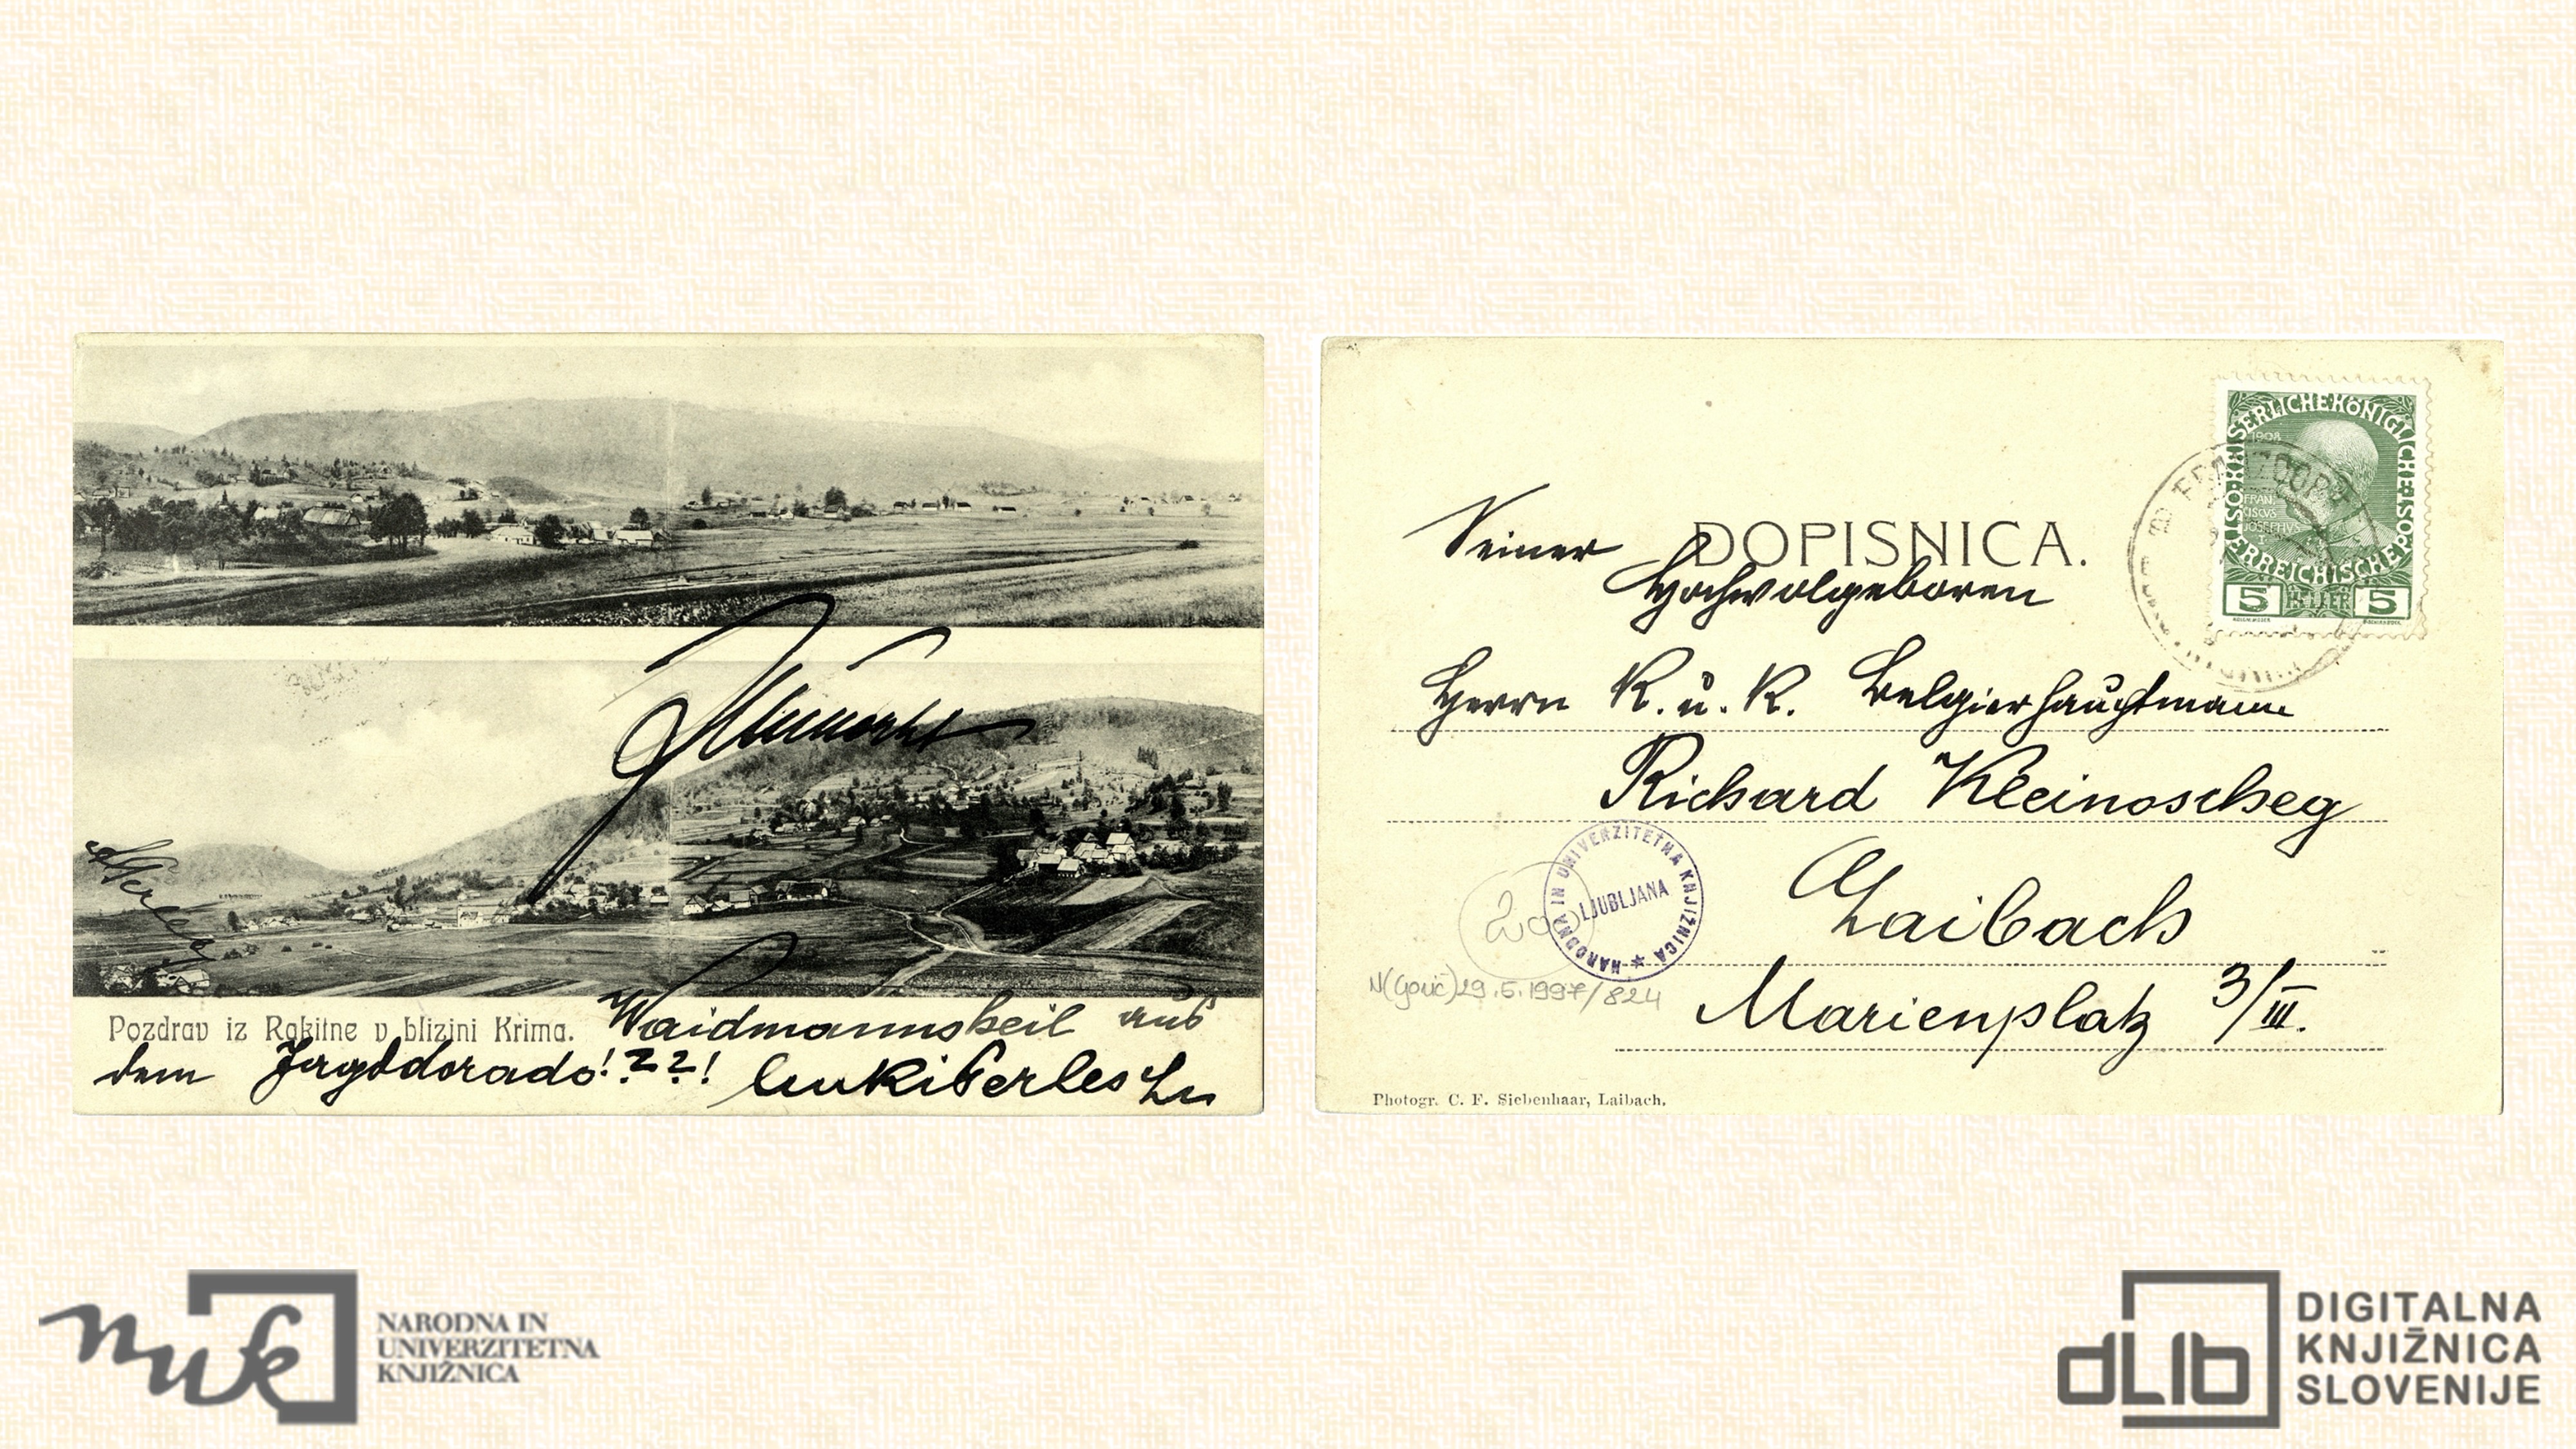 Pozdrav iz Rakitne v blizini Krima. Waidmannsheil aus
dem Jagddorado!??!
DOPISNICA.
Seiner
Hochwolgeboren
Herrn K. u. K. Belgierhauptmann
Richard Kleinoscheg
Laibach
Marienplatz 3/III.
Photogr. C. F. Siebenhaar, Laibach.
KAISERLICHE KÖNIGLICHE ÖSTERREICHISCHE POST
1908
FRAN
CISCVS
JOSEPHVS
I
5 HELLER 5
NARODNA IN UNIVERZITETNA KNJIŽNICA
LJUBLJANA
200
29.5.1997/824
nuk
NARODNA IN
UNIVERZITETNA
KNJIŽNICA
dLib
DIGITALNA
KNJIŽNICA
SLOVENIJE